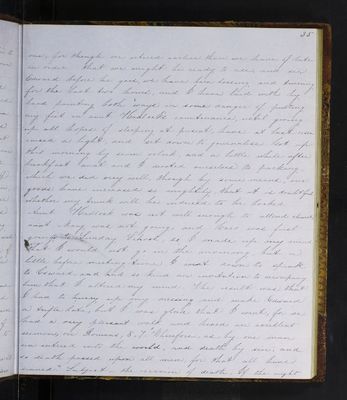 35
one, for though we retired earlier than we have of late
in order that we might be ready to rise and see
Edward before he goes we have been tossing and turning
for the last two hours, and I have laid with my
head pointing both ways in some danger of putting
my feet in aunt countenance, until giving
up all hopes of sleeping at present, have at last
a light, and set down to journalize. Got up
this morning by seven o'clock and a little while after
breakfast aunt and I seated ourselves to packing
which we did very well, though by some means my
goods have increased so mightily that it is doubtful
whether my trunk will be induced to be locked
Aunt was not well enough to attend church,
aunt Mary was not going, and was first
Sunday School, so I made up my mind
that I would not go in the morning, but a
little before meeting time, I went down to speak
to Edward and had so kind an invitation to accompany
him that I altered my mind. The result was that
I had to hurry up my dressing and make Edward
a trifle late, but I was glad that I went, for we
had a very pleasant walk and heard an excellent
sermon, on Romans, 5. 12 "Wherefore, as by one man
sin entered into the world, and death by sin; and
so death passed upon all men, for that all have
sinned" Subject, the of death. Of the night